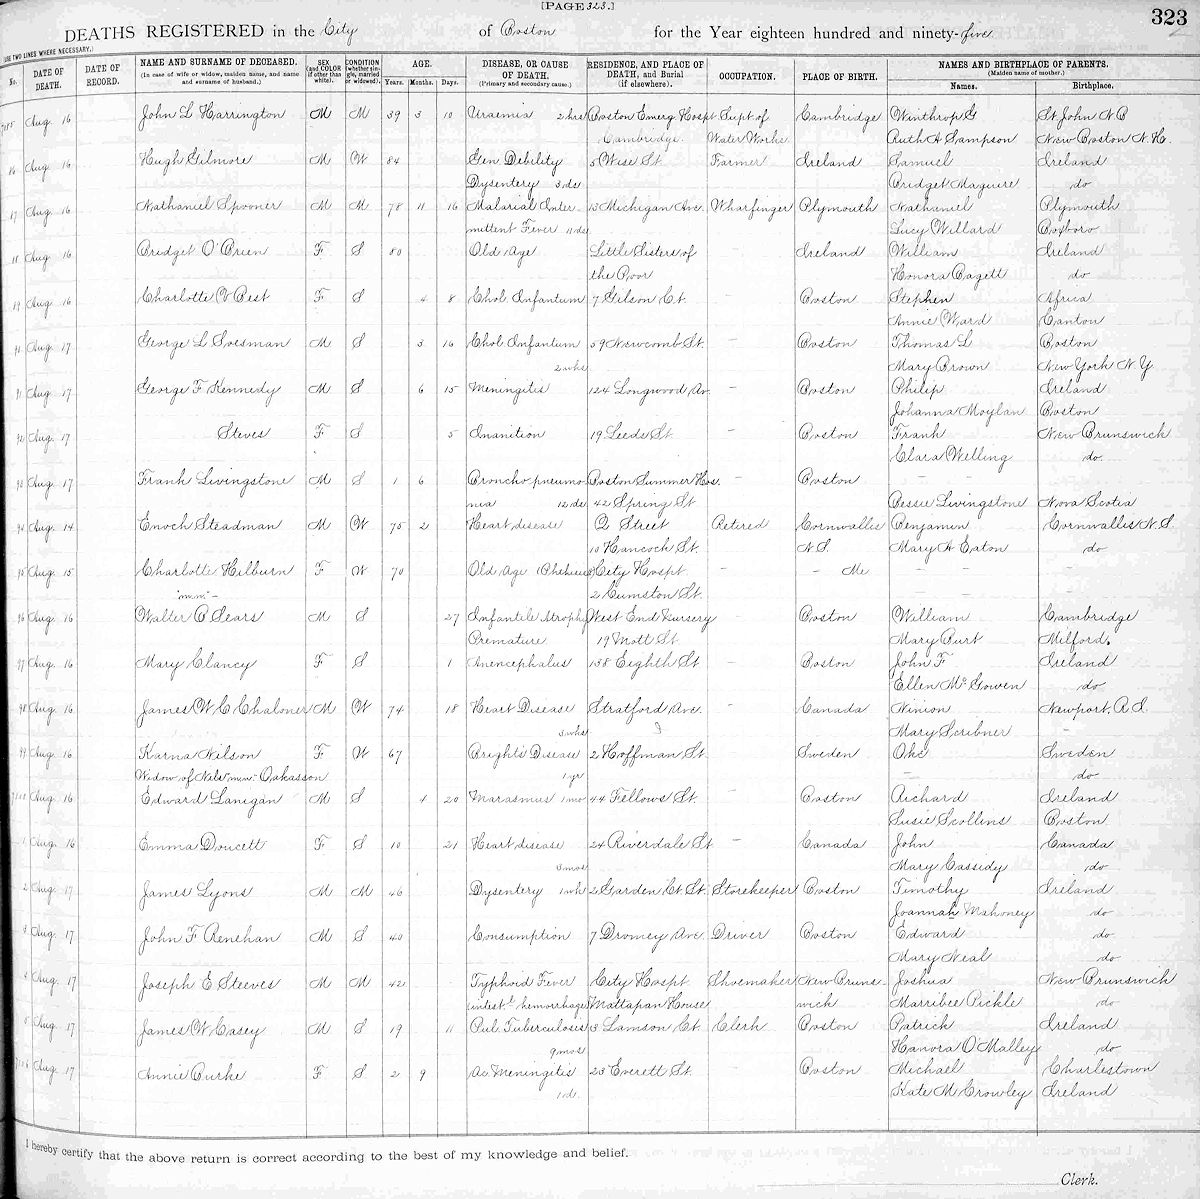 [PAGE 323.]
323
DEATHS REGISTERED in the City of Boston for the Year eighteen hundred and ninety-five
USE TWO LINES WHERE NECESSARY.)
No. DATE OF DEATH. DATE OF RECORD. NAME AND SURNAME OF DECEASED. (In case of wife or widow, maiden name, and name and surname of husband.) SEX (and COLOR if other than white). CONDITION (whether single, married or widowed). AGE. Years. Months. Days. DISEASE, OR CAUSE OF DEATH. (Primary and secondary cause.) RESIDENCE, AND PLACE OF DEATH, and Burial (if elsewhere). OCCUPATION. PLACE OF BIRTH. NAMES AND BIRTHPLACE OF PARENTS. (Maiden name of mother.) Names. Birthplace.
7085 Aug. 16 John L Harrington M M 39 3 10 Uraemia 2 hrs Boston Emerg Hospt Supt of Cambridge Winthrop G St John N B
Cambridge. Water Works. Ruth A Sampson New Boston N.H.
86 Aug 16 Hugh Gilmore M W 84 Gen Debility 5 Wise St. Farmer Ireland Samuel Ireland
Dysentery 3 ds Bridget Maguire do
87 Aug 16 Nathaniel Spooner M M 78 11 16 Malarial Inter 13 Michigan Ave. Wharfinger Plymouth Nathaniel Plymouth
mittent Fever 11 ds Lucy Willard Boxboro
88 Aug 16 Bridget O'Brien F S 80 Old Age Little Sisters of Ireland William Ireland
the Poor Honora Bagett do
89 Aug 16 Charlotte V Best F S 4 8 Chol. Infantum 7 Gilson Ct. - Boston Stephen Africa
Annie Ward Canton
90 Aug. 17 George L Svesman M S 3 16 Chol Infantum 59 Newcomb St. - Boston Thomas L Boston
2 wks Mary Brown New York N.Y
91 Aug. 17 George F Kennedy M S 6 15 Meningitis 124 Longwood Av. - Boston Philip Ireland
Johanna Moylan Boston
92 Aug. 17 Steves F S 5 Inanition 19 Leeds St. - Boston Frank New Brunswick
Clara Welling do
93 Aug. 17 Frank Livingstone M S 1 6 Broncho pneumo Boston Summer Hos. - Boston - -
nia 12 ds 42 Spring St Bessie Livingstone Nova Scotia
94 Aug. 14 Enoch Steadman M W 75 2 Heart disease Q Street Retired Cornwallis Benjamin Cornwallis N.S.
10 Hancock St. N.S. Mary A Eaton do
95 Aug. 15 Charlotte Hilburn F W 70 Old Age City Hospt - Me - -
"m.n." - 2 Cumston St. - -
96 Aug. 16 Walter P Sears M S 27 Infantile Atrophy West End Nursery - Boston William Cambridge
Premature 19 Mott St. Mary Burt Milford.
97 Aug. 16 Mary Clancy F S 1 Anencephalus 138 Eighth St - Boston John F Ireland
Ellen McGowen do
98 Aug. 16 James W C Chaloner M W 74 18 Heart Disease Stratford Ave. - Canada Ninion Newport. R I.
3 wks Mary Scribner
99 Aug. 16 Karna Nilson F W 67 Brights Disease 2 Hoffman St. Sweden Oke Sweden
Widow of Nels "m.n." Oakasson 1 yr - do
7100 Aug. 16 Edward Lanigan M S 4 20 Marasmus 1 mo 44 Fellows St. - Boston Richard Ireland
Susie Scollins Boston
1 Aug. 16 Emma Doucett F S 10 21 Heart disease 24 Riverdale St - Canada John Canada
3 mos Mary Cassidy do
2 Aug. 17 James Lyons M M 46 Dysentery 1 wk 2 Garden Ct St. Storekeeper Boston Timothy Ireland
Joannah Mahoney do
3 Aug. 17 John F Renehan M S 40 Consumption 7 Dromey Ave. Driver Boston Edward do
Mary Neal do
4 Aug. 17 Joseph E Steeves M M 42 Typhoid Fever City Hospt. Shoemaker New Bruns. Joshua New Brunswick
intestl hemorrhage Mattapan House wick Marribee Pickle do
5 Aug. 17 James W. Casey M S 19 11 Pul. Tuberculosis 3 Lamson Ct. Clerk Boston Patrick Ireland
9 mos Hanora O'Malley do
7106 Aug. 17 Annie Burke F S 2 9 Ac. Meningitis 23 Everett St. Boston Michael Charlestown
1 d. Kate M Crowley Ireland
I hereby certify that the above return is correct according to the best of my knowledge and belief.
Clerk.